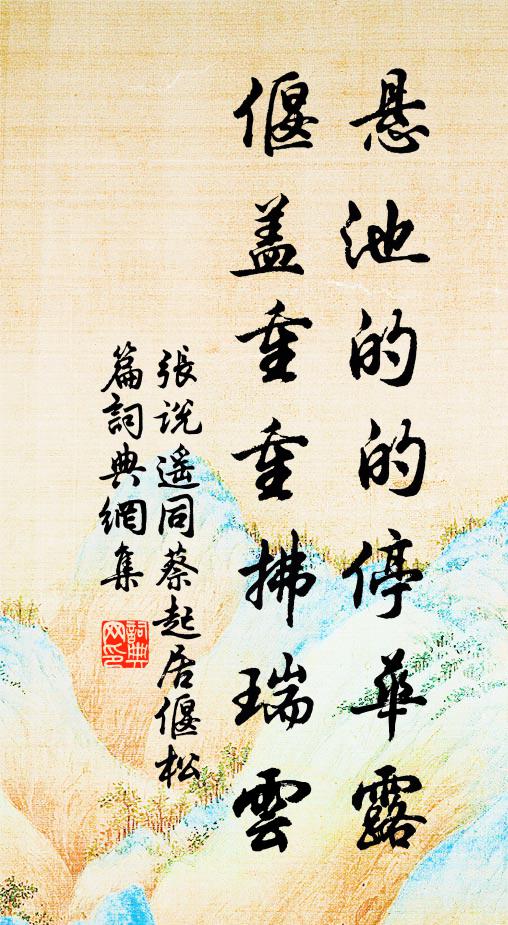 悬池的的停華露
偃盖重重拂瑞雲
張说遥同蔡起居偃松
篇詞典網集
詞典網印